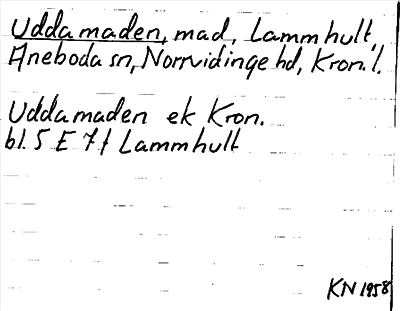 Uddamaden, mad, Lammhult,
Aneboda sn, Norrvidinge hd, Kron. l.
Uddamaden ek Kron.
bl. 5 E 7 f Lammhult
KN 1958